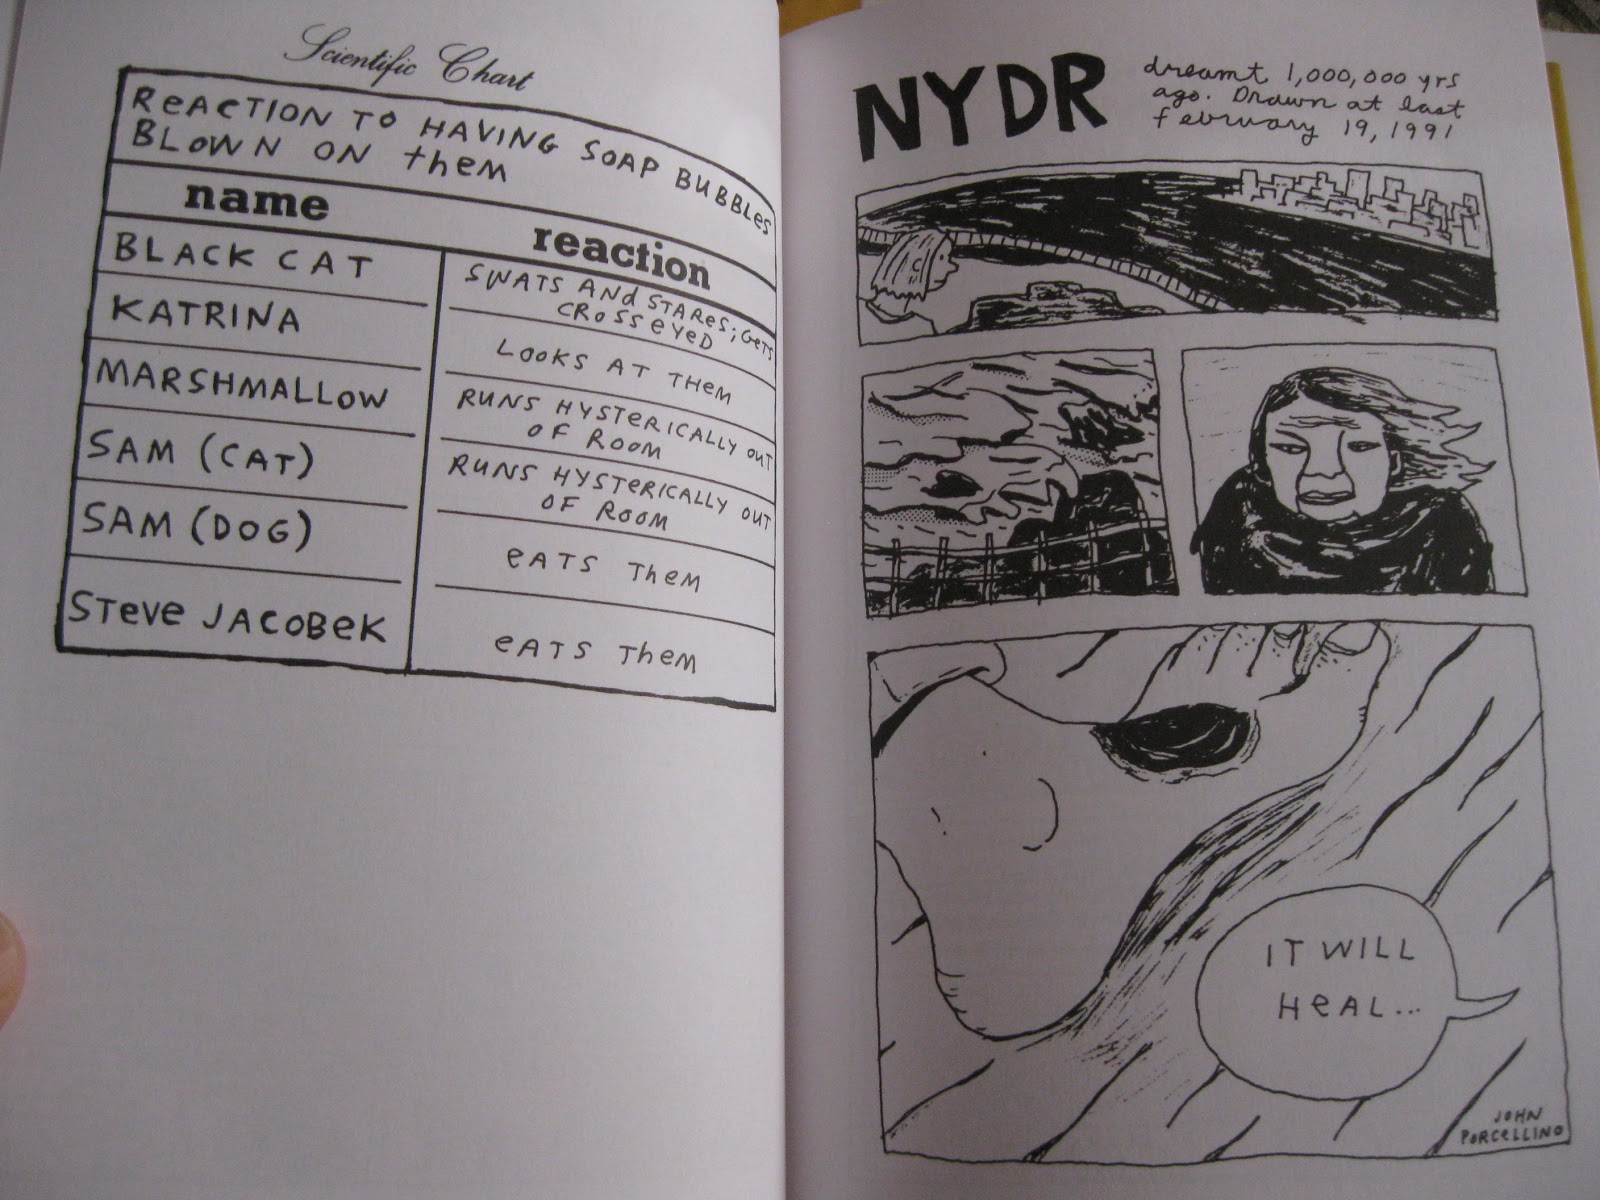 Scientific Chart
REACTION TO HAVING SOAP BUBBLES
BLOWN ON THEM
name
reaction
BLACK CAT
SWATS AND STARES; GETS
CROSS EYED
KATRINA
LOOKS AT THEM
MARSHMALLOW
RUNS HYSTERICALLY OUT
OF ROOM
SAM (CAT)
RUNS HYSTERICALLY OUT
OF ROOM
SAM (DOG)
EATS THEM
STEVE JACOBEK
EATS THEM
NYDR
dreamt 1,000,000 yrs
ago. Drawn at last
february 19, 1991
IT WILL
HEAL...
JOHN
PORCELLINO